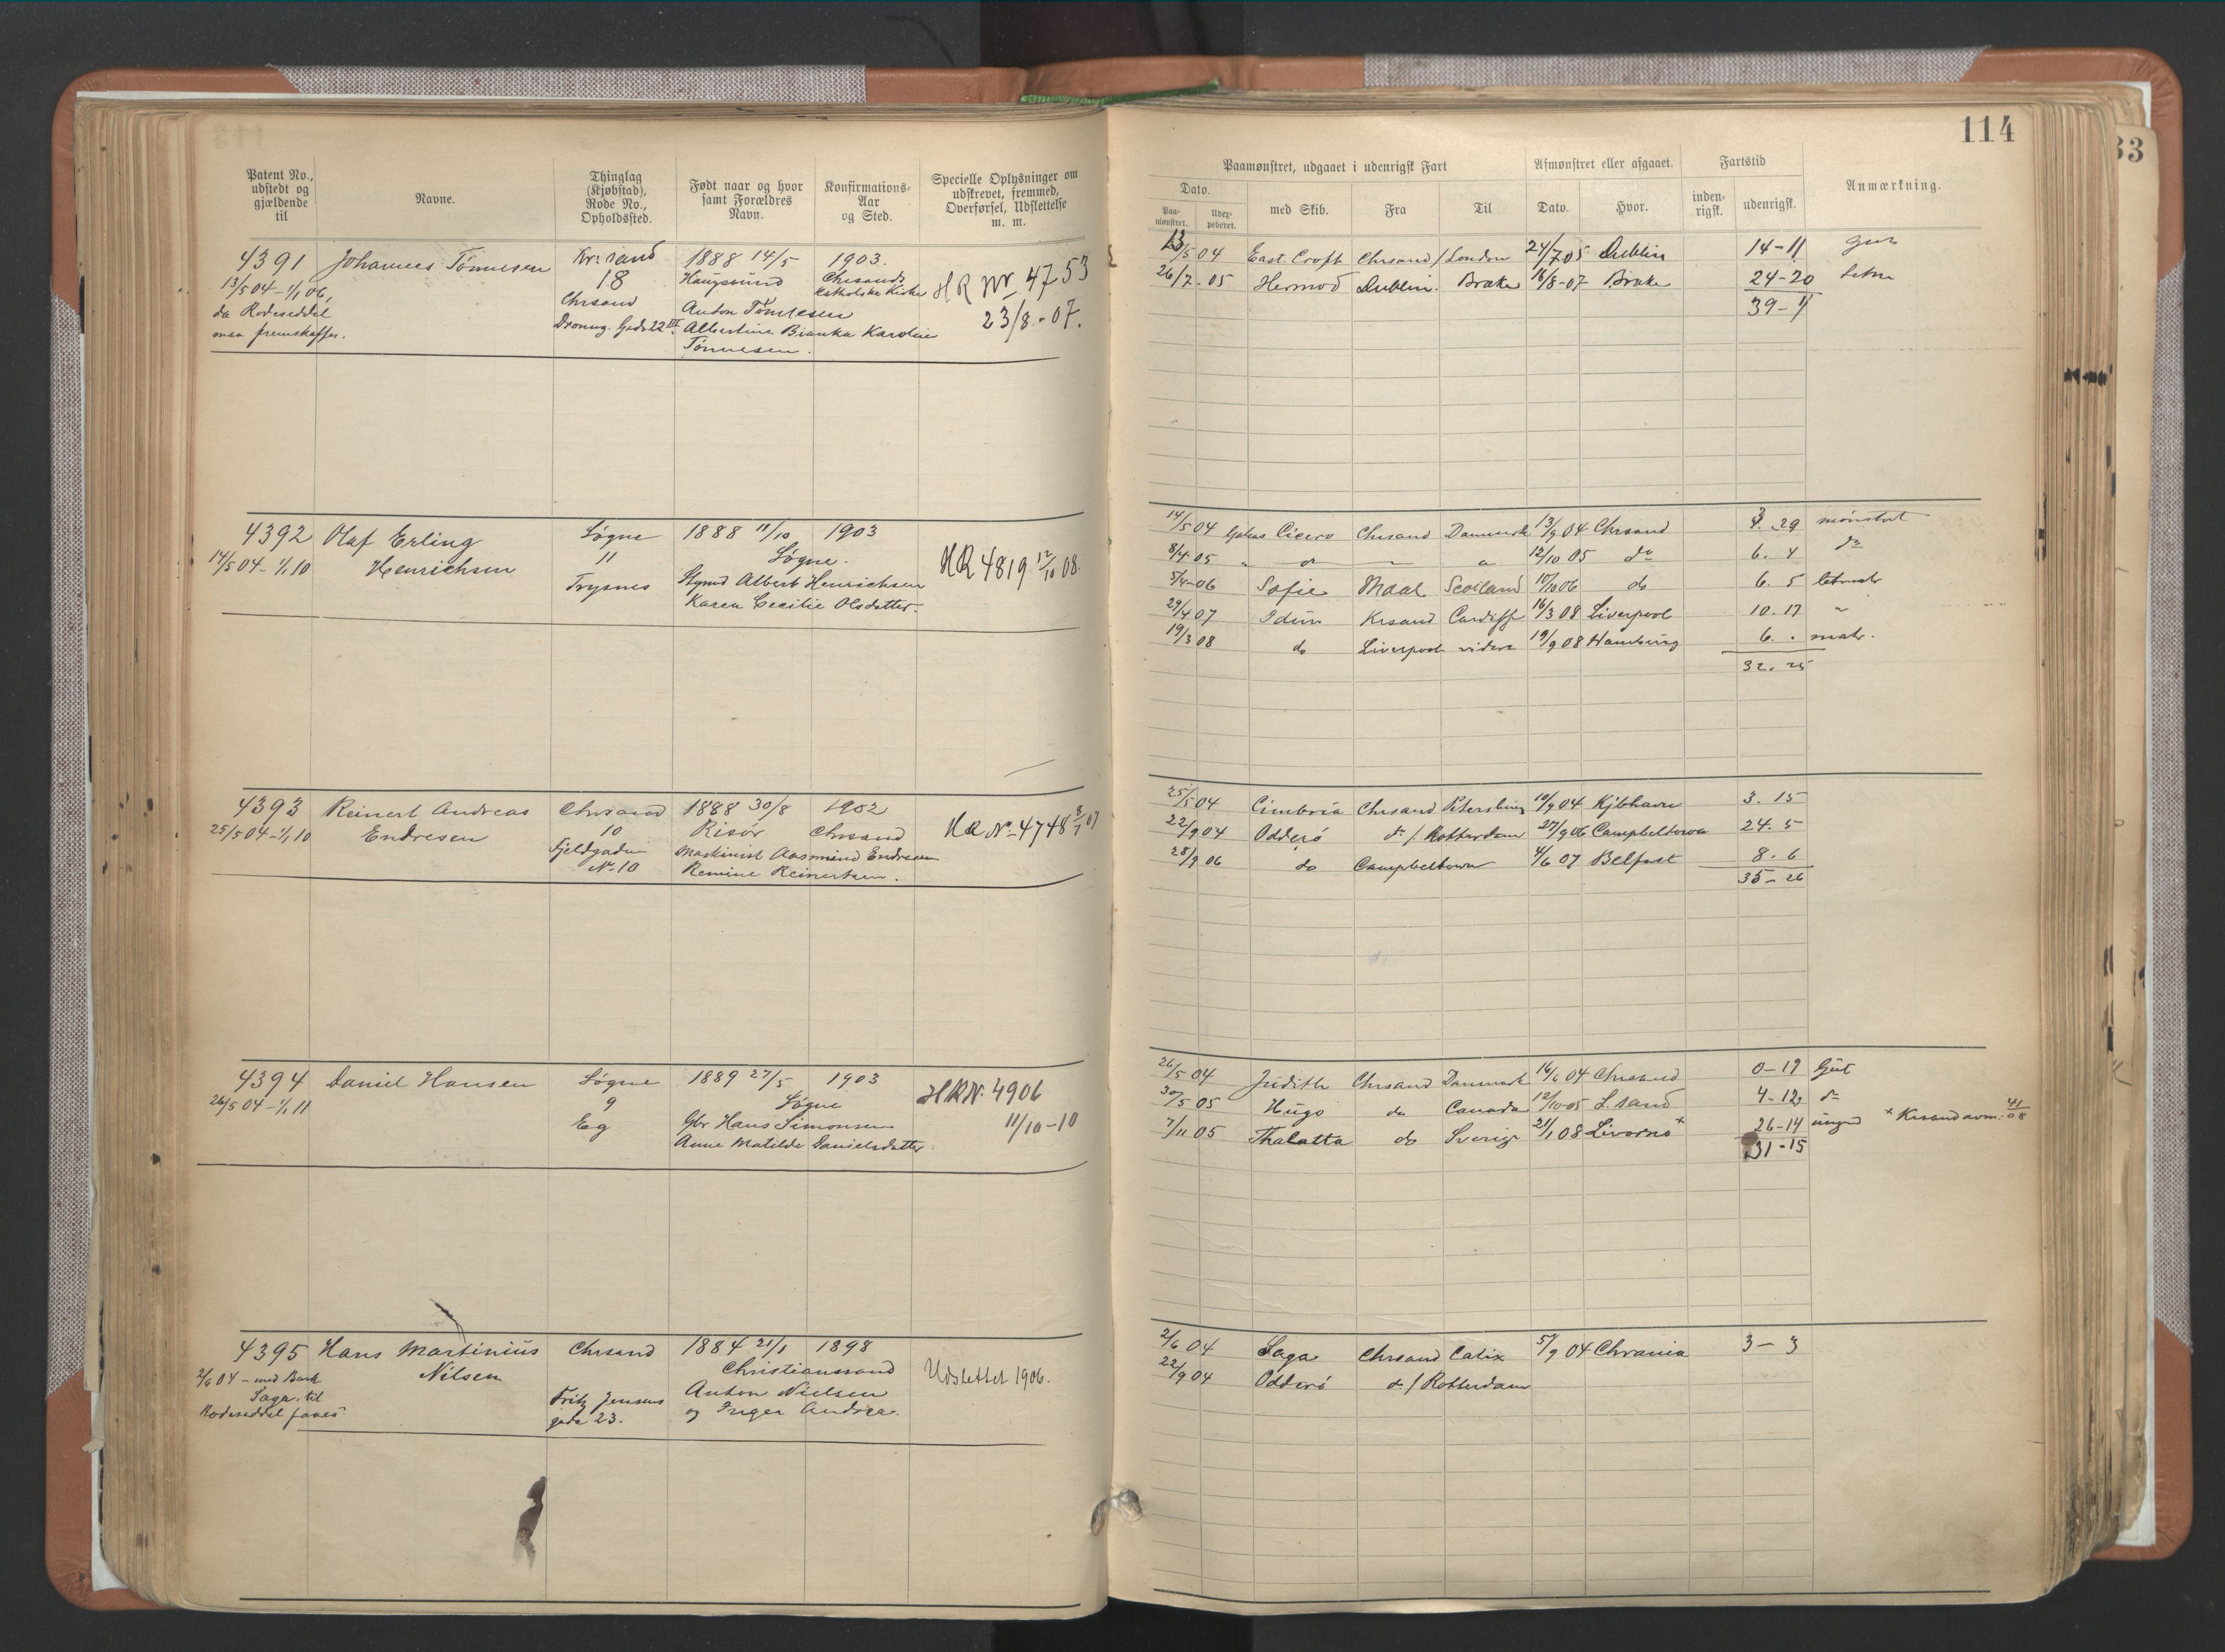 114
33
Patent No., udstedt og gjældende til
Navne.
Thinglag (Kjøbstad), Rode No., Opholdssted.
Født naar og hvor samt Forældres Navn.
Konfirmations-Aar og Sted.
Specielle Oplysninger om udskrevet, fremmed, Overførsel, Udslettelse m. m.
Paamønstret, udgaaet i udenrigsk Fart
Afmønstret eller afgaaet.
Fartstid
Anmærkning.
Dato.
Paa-mønstret.
med Skib.
Fra
Til
Dato.
Hvor.
inden-rigsk.
udenrigsk.
4391 Johannes Tønnesen Kr: sand 1888 14/5 1903.
13/5 04 - 1/1 06, 18 Haugesund Chrsands katholske Kirke HR Nr 4753
da Rodeseddel Chrsand Anton Tønnesen 23/8 - 07.
maa fremskaffes. Dronng. Gade 22 III. Albertine Bianka Karoline
Tønnesen.
13/5 04 East Croft Chrsand / London 24/7 05 Dublin 14-11 gut
26/7 - 05 Hermod Dublin. Brake 16/8 - 07 Brake 24-20
39-11
4392 Olaf Erling Søgne 1888 11/10 1903
14/5 04 - 1/1 10 Henrichsen 11 Søgne. HR 4819 12/10 08.
Trysnes Styrmd Albert Henrichsen
Karen Cecilie Olsdatter.
14/5 04 Galeas Cicero Chrsand Danmark 13/9 04 Chrsand 3. 29 mønstret
8/4 05 " do 12/10 05 do 6. 4 do
5/4 - 06 Sofie Maal Scotland 10/10 06 do 6. 5 letmatr
29/4 07 Idun Krsand Cardiff 16/3 08 Liverpool 10. 17 "
19/3 08 do Liverpool videre 19/9 08 Hamburg 6. . matr.
32. 25
4393 Reinert Andreas Chrsand 1888 30/8 1902
25/5 04 - 1/1 10 Endresen 10 Risør Chrsand HR No - 4748 8/7 07
Fjeldgaden Maskinist Aasmund Endresen
No 10 Remine Reinertsen.
25/5 04 Cimbria Chrsand Petersburg 10/9 04 Kjbhavn 3. 15
22/9 04 Odderø do / Rotterdam 27/9 06 Campbeltown 24. 5
28/9 06 do Campbeltown 4/6 07 Belfast 8. 6
35 - 26
4394 Daniel Hansen Søgne 1889 27/5 1903
26/5 04 - 1/1 11 9 Søgne HRN. 4906
Eg Gbr Hans Simonsen 11/10 - 10
Anne Matilde Danielsdatter.
26/5 04 Judith Chrsand Danmark 16/6 04 Chrsand 0-19 Gut
30/5 05 Hugo do Canada 12/10 - 05 L. sand 4-12 do
7/11 05 Thalatta do Sverige 21/1 08 Livorno x 26-14 ungmd x Krsand avm.
31-15
4395 Hans Martinius Chrsand 1884 21/1 1898
2/6 04 - med Bark Nilsen Christianssand Udslettet 1906.
Saga, til Fritz Jensens Anton Nielsen
Rodeseddel faaes gade 23. og Inger Andrea.
2/6 04 Saga Chrsand Calix 5/9 04 Chrania 3 - 3
22/9 04 Odderø do / Rotterdam